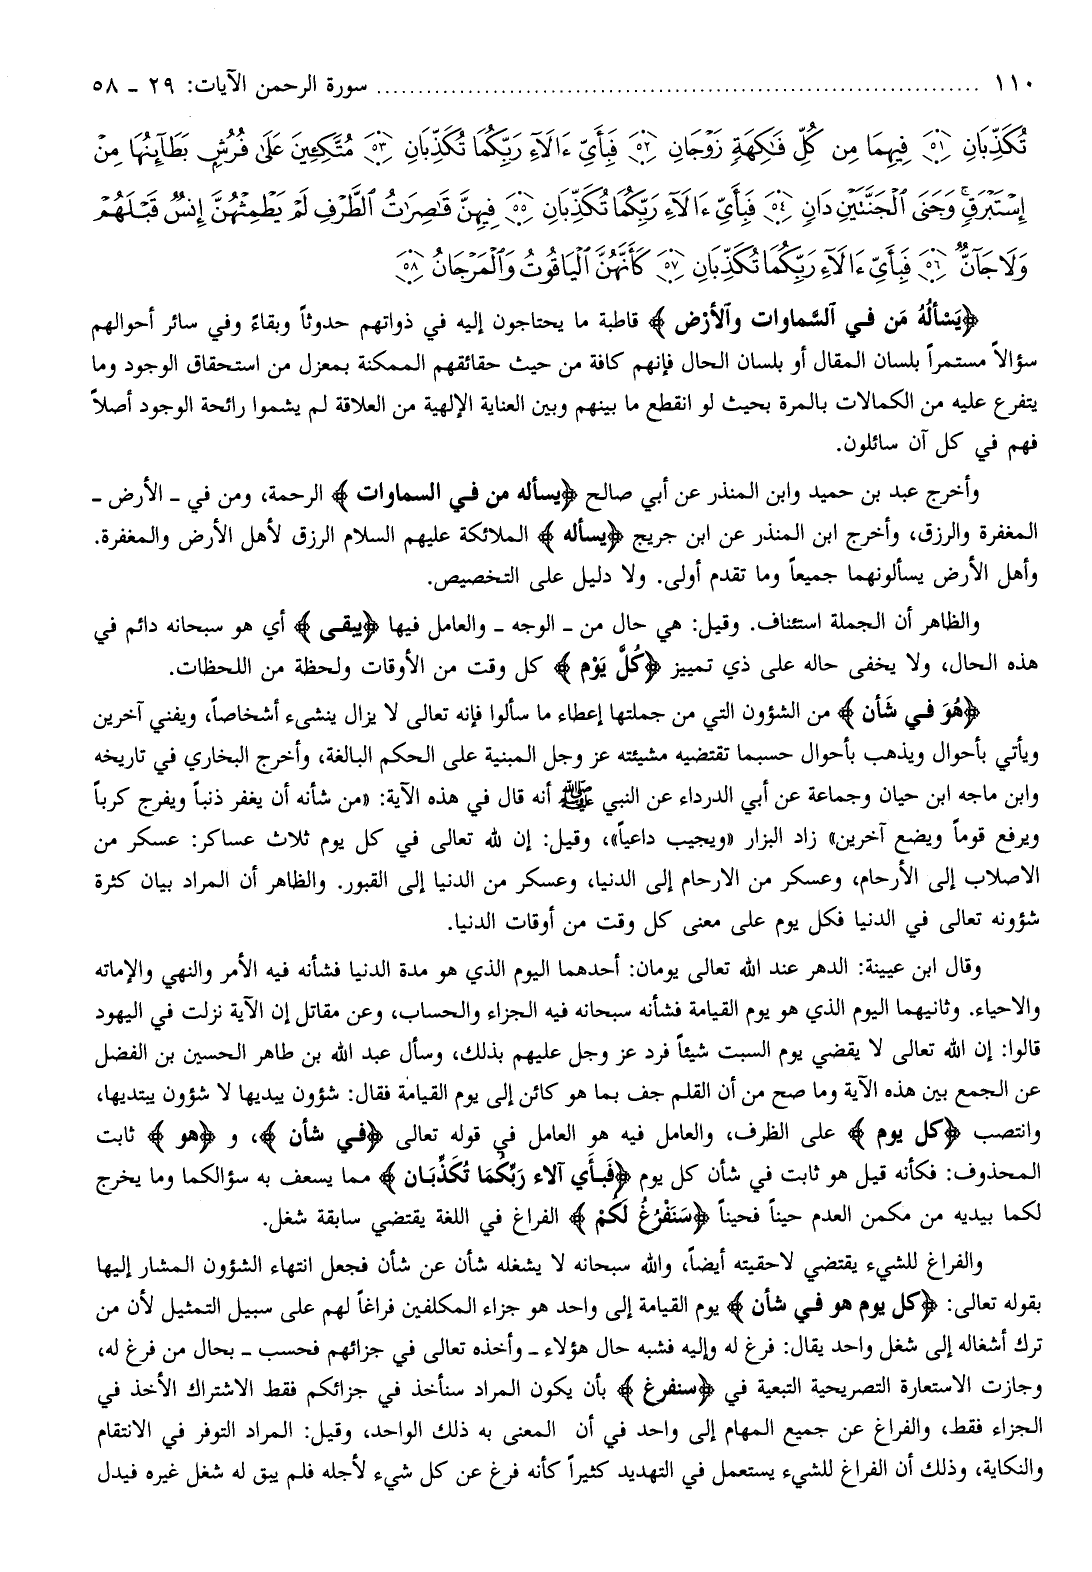 ١١٠ ........................................................................ سورة الرحمن الآيات: ٢٩ ـ ٥٨
تُكَذِّبَانِ ٥١ فِيهِمَا مِن كُلِّ فَٰكِهَةٍ زَوْجَانِ ٥٢ فَبِأَيِّ ءَالَآءِ رَبِّكُمَا تُكَذِّبَانِ ٥٣ مُتَّكِئِينَ عَلَىٰ فُرُشٍ بَطَآئِنُهَا مِنْ
إِسْتَبْرَقٍ وَجَنَى ٱلْجَنَّتَيْنِ دَانٍ ٥٤ فَبِأَيِّ ءَالَآءِ رَبِّكُمَا تُكَذِّبَانِ ٥٥ فِيهِنَّ قَٰصِرَٰتُ ٱلطَّرْفِ لَمْ يَطْمِثْهُنَّ إِنسٌ قَبْلَهُمْ
وَلَا جَآنٌّ ٥٦ فَبِأَيِّ ءَالَآءِ رَبِّكُمَا تُكَذِّبَانِ ٥٧ كَأَنَّهُنَّ ٱلْيَاقُوتُ وَٱلْمَرْجَانُ ٥٨
﴿يَسْأَلُهُ مَن في ٱلسَّماوات وٱلأرْض﴾ قاطبة ما يحتاجون إليه في ذواتهم حدوثاً وبقاءً وفي سائر أحوالهم
سؤالاً مستمراً بلسان المقال أو بلسان الحال فإنهم كافة من حيث حقائقهم الممكنة بمعزل من استحقاق الوجود وما
يتفرع عليه من الكمالات بالمرة بحيث لو انقطع ما بينهم وبين العناية الإلهية من العلاقة لم يشموا رائحة الوجود أصلاً
فهم في كل آن سائلون.
وأخرج عبد بن حميد وابن المنذر عن أبي صالح ﴿يسأله من في السماوات﴾ الرحمة، ومن في ـ الأرض ـ
المغفرة والرزق، وأخرج ابن المنذر عن ابن جريج ﴿يسأله﴾ الملائكة عليهم السلام الرزق لأهل الأرض والمغفرة.
وأهل الأرض يسألونهما جميعاً وما تقدم أولى. ولا دليل على التخصيص.
والظاهر أن الجملة استئناف. وقيل: هي حال من ـ الوجه ـ والعامل فيها ﴿يبقى﴾ أي هو سبحانه دائم في
هذه الحال، ولا يخفى حاله على ذي تمييز ﴿كُلَّ يَوْم﴾ كل وقت من الأوقات ولحظة من اللحظات.
﴿هُوَ في شَأن﴾ من الشؤون التي من جملتها إعطاء ما سألوا فإنه تعالى لا يزال ينشىء أشخاصاً، ويفني آخرين
ويأتي بأحوال ويذهب بأحوال حسبما تقتضيه مشيئته عز وجل المبنية على الحكم البالغة، وأخرج البخاري في تاريخه
وابن ماجه ابن حيان وجماعة عن أبي الدرداء عن النبي ﷺ أنه قال في هذه الآية: «من شأنه أن يغفر ذنباً ويفرج كرباً
ويرفع قوماً ويضع آخرين» زاد البزار «ويجيب داعياً»، وقيل: إن لله تعالى في كل يوم ثلاث عساكر: عسكر من
الاصلاب إلى الأرحام، وعسكر من الارحام إلى الدنيا، وعسكر من الدنيا إلى القبور. والظاهر أن المراد بيان كثرة
شؤونه تعالى في الدنيا فكل يوم على معنى كل وقت من أوقات الدنيا.
وقال ابن عيينة: الدهر عند الله تعالى يومان: أحدهما اليوم الذي هو مدة الدنيا فشأنه فيه الأمر والنهي والإماته
والاحياء. وثانيهما اليوم الذي هو يوم القيامة فشأنه سبحانه فيه الجزاء والحساب، وعن مقاتل إن الآية نزلت في اليهود
قالوا: إن الله تعالى لا يقضي يوم السبت شيئاً فرد عز وجل عليهم بذلك، وسأل عبد الله بن طاهر الحسين بن الفضل
عن الجمع بين هذه الآية وما صح من أن القلم جف بما هو كائن إلى يوم القيامة فقال: شؤون يبديها لا شؤون يبتديها،
وانتصب ﴿كل يوم﴾ على الظرف، والعامل فيه هو العامل في قوله تعالى ﴿في شأن﴾، و ﴿هو﴾ ثابت
المحذوف: فكأنه قيل هو ثابت في شأن كل يوم ﴿فَبأَي آلاء رَبِّكُمَا تُكَذِّبَان﴾ مما يسعف به سؤالكما وما يخرج
لكما بيديه من مكمن العدم حيناً فحيناً ﴿سَنَفْرُغُ لَكُمْ﴾ الفراغ في اللغة يقتضي سابقة شغل.
والفراغ للشيء يقتضي لاحقيته أيضاً، والله سبحانه لا يشغله شأن عن شأن فجعل انتهاء الشؤون المشار إليها
بقوله تعالى: ﴿كل يوم هو في شأن﴾ يوم القيامة إلى واحد هو جزاء المكلفين فراغاً لهم على سبيل التمثيل لأن من
ترك أشغاله إلى شغل واحد يقال: فرغ له وإليه فشبه حال هؤلاء ـ وأخذه تعالى في جزائهم فحسب ـ بحال من فرغ له،
وجازت الاستعارة التصريحية التبعية في ﴿سنفرغ﴾ بأن يكون المراد سنأخذ في جزائكم فقط الاشتراك الأخذ في
الجزاء فقط، والفراغ عن جميع المهام إلى واحد في أن المعنى به ذلك الواحد، وقيل: المراد التوفر في الانتقام
والنكاية، وذلك أن الفراغ للشيء يستعمل في التهديد كثيراً كأنه فرغ عن كل شيء لأجله فلم يبق له شغل غيره فيدل